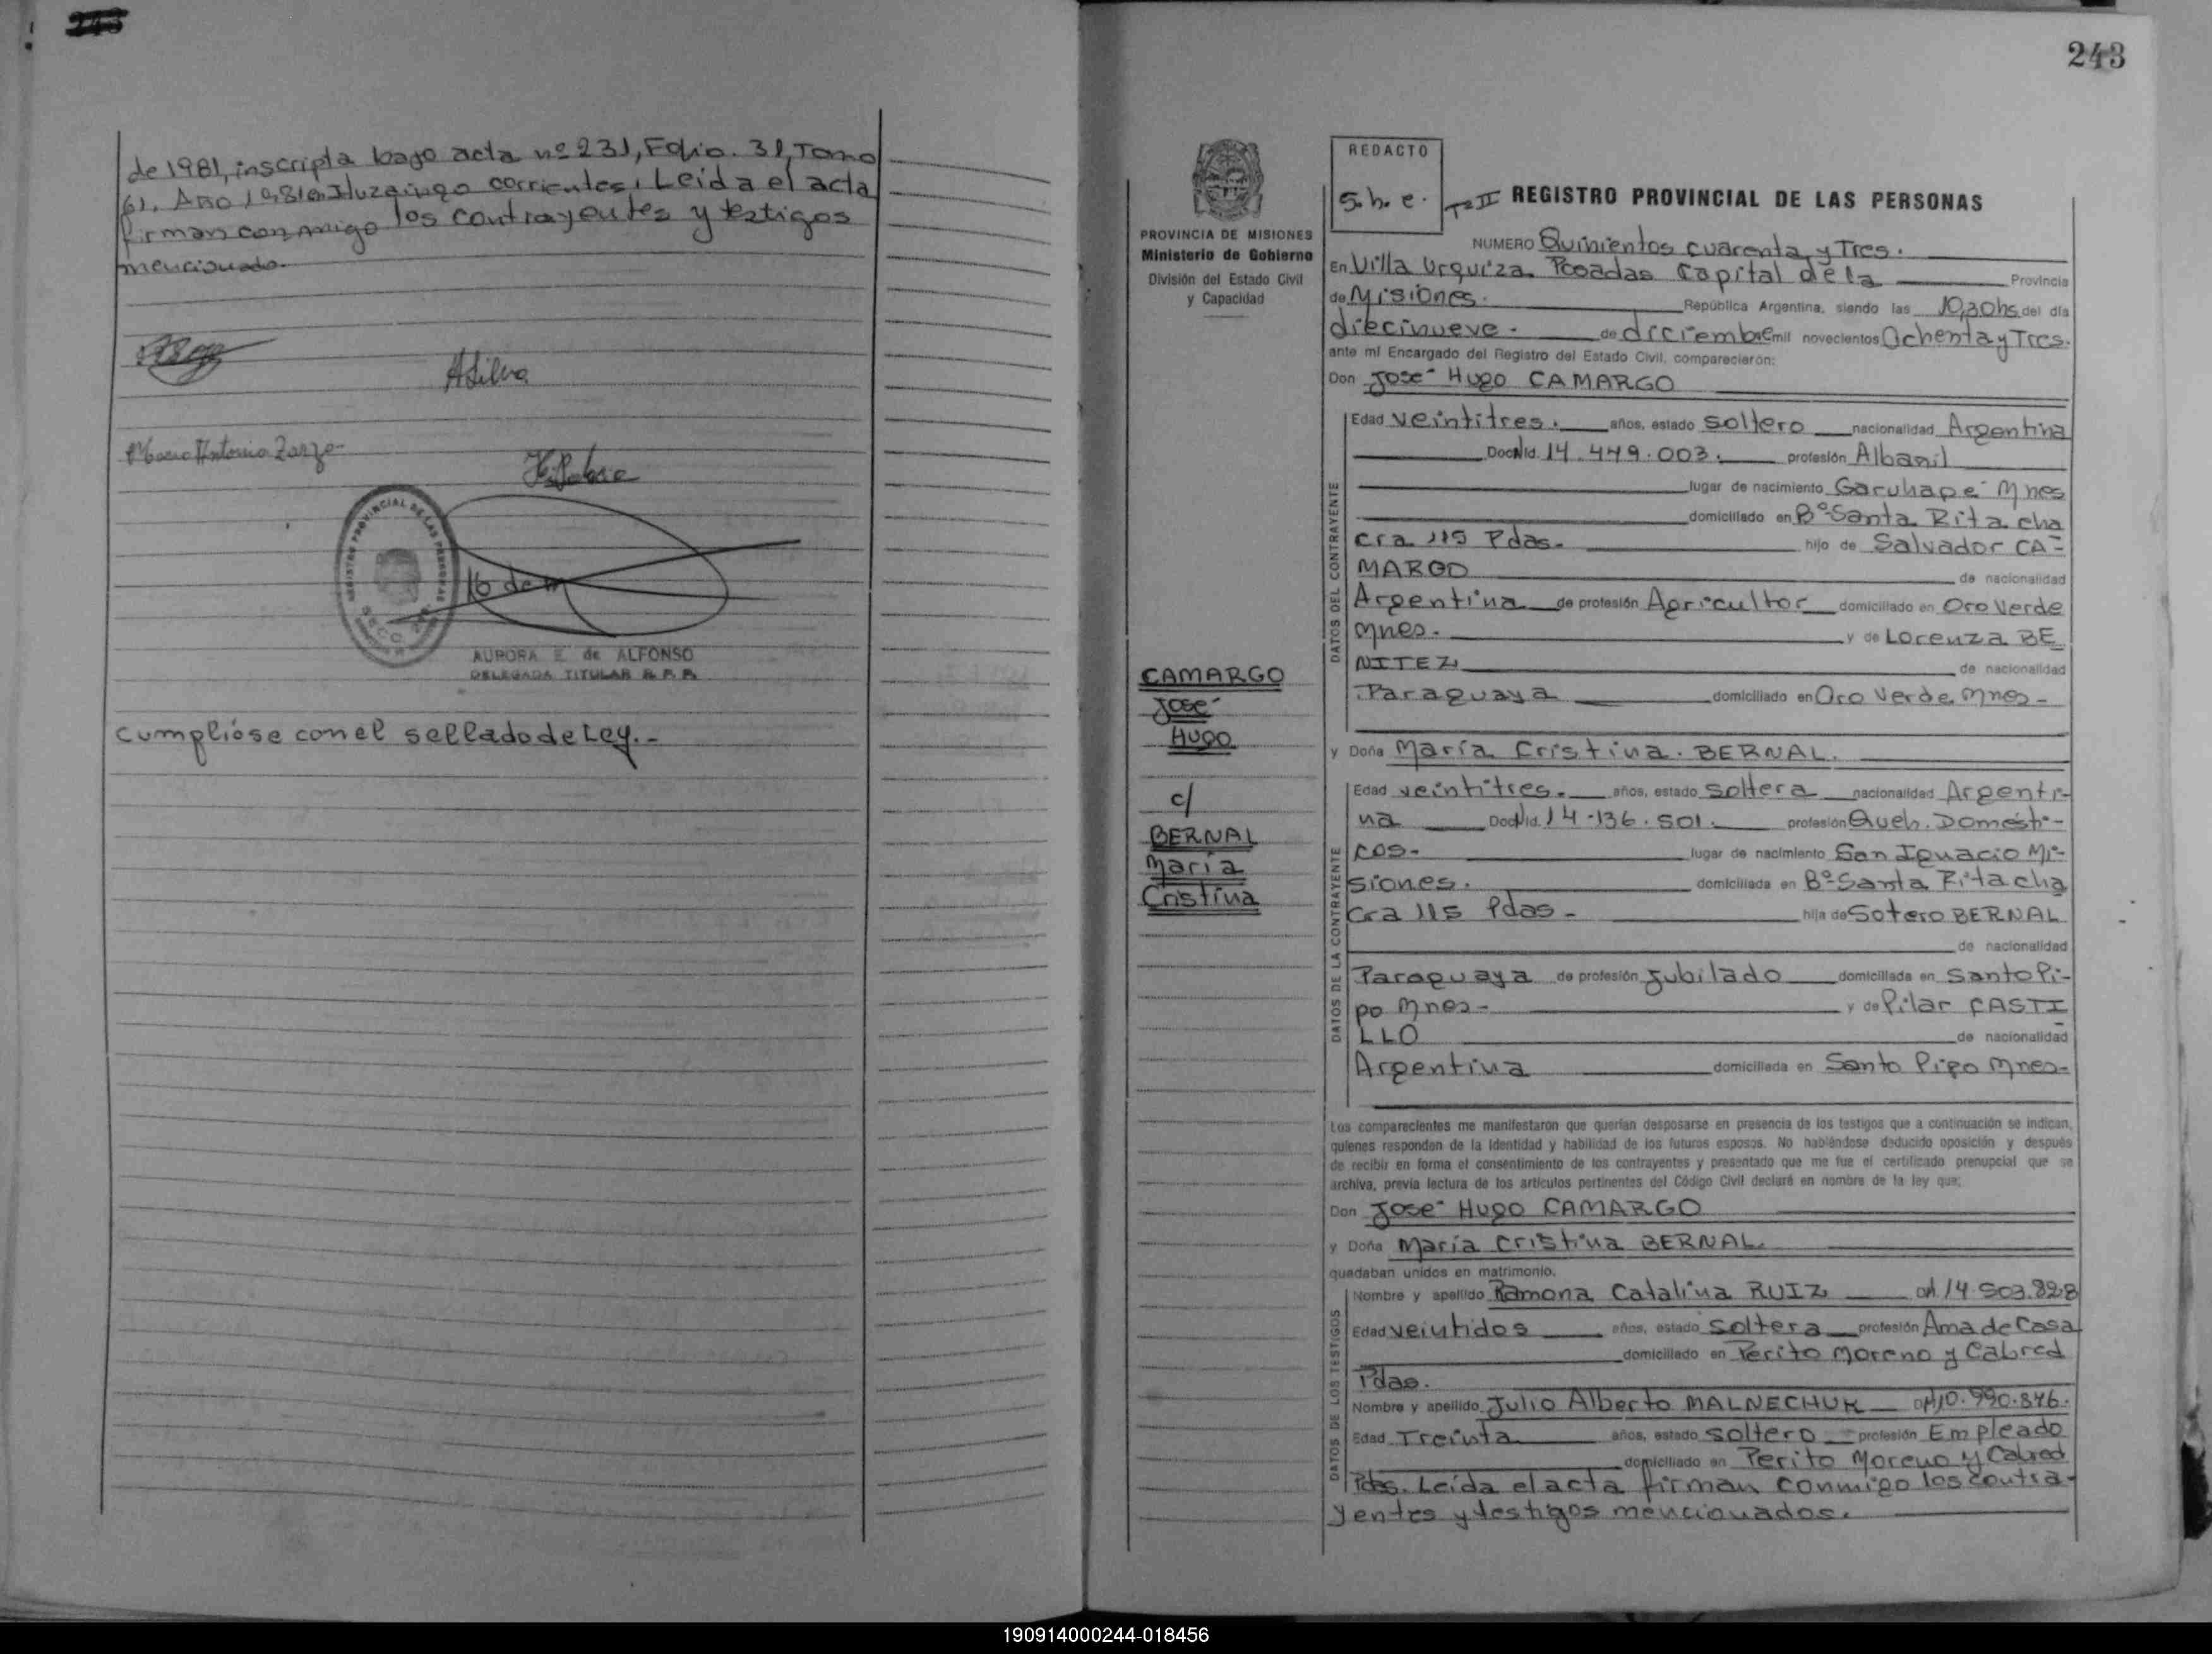 243
de 1981, inscripta bajo acta nº 231, Folio. 31, Tomo
61. Año 1981 en Ituzaingo corrientes. Leida el acta
firman con migo los contrayentes y testigos
mencionado.
ASilva
Antonio
REGISTRO PROVINCIAL DE LAS PERSONAS
AURORA E. de ALFONSO
DELEGADA TITULAR R. P. P.
cumplióse con el sellado de Ley.-
243
REDACTO
S. h. e.
Tº II REGISTRO PROVINCIAL DE LAS PERSONAS
PROVINCIA DE MISIONES
Ministerio de Gobierno
División del Estado Civil
y Capacidad
CAMARGO
José
HUGO
c/
BERNAL
María
Cristina
NUMERO Quinientos cuarenta y Tres.
En Villa Urquiza Posadas Capital de la Provincia
de Misiones. República Argentina, siendo las 10,30hs del día
diecinueve. de diciembre mil novecientos Ochenta y Tres.
ante mí Encargado del Registro del Estado Civil, comparecieron:
Don José Hugo CAMARGO
DATOS DEL CONTRAYENTE
Edad veintitres. años, estado soltero nacionalidad Argentina
Doc. Nid. 14.449.003. profesión Albañil
lugar de nacimiento Garuhapé Mnes
domiciliado en Bº Santa Rita cha
cra 115 Pdas. hijo de Salvador CA-
MARGO de nacionalidad
Argentina de profesión Agricultor domiciliado en Oro Verde
Mnes. y de Lorenza BE
NITEZ de nacionalidad
Paraguaya domiciliado en Oro Verde Mnes-
y Doña María Cristina. BERNAL.
DATOS DE LA CONTRAYENTE
Edad veintitres. años, estado soltera nacionalidad Argenti-
na Doc. Nid. 14-136.501. profesión Queh. Domésti-
cos- lugar de nacimiento San Ignacio Mi-
siones. domiciliada en Bº Santa Rita cha
cra 115 Pdas- hija de Sotero BERNAL
de nacionalidad
Paraguaya de profesión Jubilado domiciliada en Santo Pi-
po Mnes- y de Pilar CASTI
LLO de nacionalidad
Argentina domiciliada en Santo Pipo Mnes-
Los comparecientes me manifestaron que querían desposarse en presencia de los testigos que a continuación se indican,
quienes responden de la identidad y habilidad de los futuros esposos. No habiéndose deducido oposición y después
de recibir en forma el consentimiento de los contrayentes y presentado que me fue el certificado prenupcial que se
archiva, previa lectura de los artículos pertinentes del Código Civil declaré en nombre de la ley que:
Don José Hugo CAMARGO
y Doña María Cristina BERNAL.
quedaban unidos en matrimonio.
DATOS DE LOS TESTIGOS
Nombre y apellido Ramona Catalina RUIZ 14.503.828
Edad veintidos años, estado soltera profesión Ama de Casa
domiciliado en Perito Moreno y Cabred
Pdas.
Nombre y apellido Julio Alberto MALNECHUK 10.990.846.
Edad Treinta años, estado soltero profesión Empleado
domiciliado en Perito Moreno y Cabred
Pdas. Leída el acta firman conmigo los contra-
yentes y testigos mencionados.
190914000244-018456